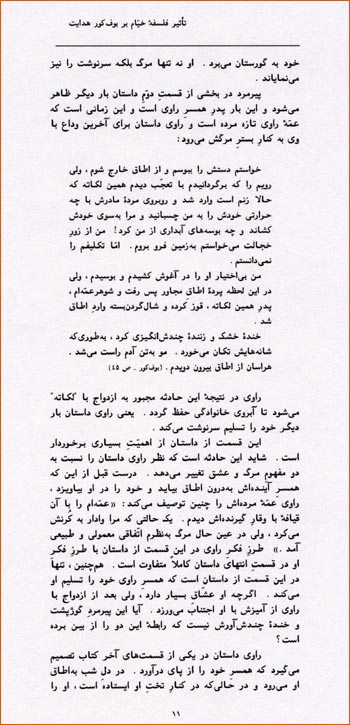 تأثیر فلسفهٔ خیّام بر بوف‌کور هدایت
خود به گورستان می‌برد . او نه تنها مرگ بلکه سرنوشت را نیز
می‌نمایاند .
پیرمرد در بخشی از قسمتِ دوّمِ داستان بار دیگر ظاهر
می‌شود و این بار پدرِ همسرِ راوی است و این زمانی است که
عمّهٔ راوی تازه مرده است و راوی داستان برای آخرین وداع با
وی به کنار بسترِ مرگش می‌رود :
خواستم دستش را ببوسم و از اطاق خارج شوم ، ولی
رویم را که برگردانیدم با تعجّب دیدم همین لکاته که
حالا زنم است وارد شد و روبروی مردهٔ مادرش با چه
حرارتی خودش را به من چسبانید و مرا به‌سوی خودش
کشاند و چه بوسه‌های آبداری از من کرد! من از زورِ
خجالت می‌خواستم به‌زمین فرو بروم . امّا تکلیفم را
نمی‌دانستم .
من بی‌اختیار او را در آغوش کشیدم و بوسیدم ، ولی
در این لحظه پردهٔ اطاقِ مجاور پس رفت و شوهرعمّه‌ام ،
پدرِ همین لکاته ، قوز کرده و شال‌گردن‌بسته واردِ اطاق
شد .
خندهٔ خشک و زنندهٔ چندش‌انگیزی کرد ، به‌طوری‌که
شانه‌هایش تکان می‌خورد . مو به‌تنِ آدم راست می‌شد .
هراسان از اطاق بیرون دویدم . (بوف‌کور ـ ص ۴۵)
راوی در نتیجهٔ این حادثه مجبور به ازدواج با "لکاته"
می‌شود تا آبروی خانوادگی حفظ گردد . یعنی راوی داستان بار
دیگر خود را تسلیم سرنوشت می‌کند .
این قسمت از داستان از اهمیّتِ بسیاری برخوردار
است . شاید این حادثه است که نظر راوی داستان را نسبت به
دو مفهومِ مرگ و عشق تغییر می‌دهد . درست قبل از این که
همسرِ آینده‌اش به‌درون اطاق بیاید و خود را در او بیاویزد ،
راوی عمّهٔ مرده‌اش را چنین توصیف می‌کند : «عمّه‌ام را با آن
قیافهٔ با وقارِ گیرنده‌اش دیدم . یک حالتی که مرا وادار به کرنش
می‌کرد ، ولی در عین حال مرگ به‌نظرم اتّفاقی معمولی و طبیعی
آمد .» طرزِ فکرِ راوی در این قسمت از داستان با طرزِ فکرِ
او در قسمتِ انتهای داستان کاملاً متفاوت است . هم‌چنین ، تنها
در این قسمت از داستان است که همسرِ راوی خود را تسلیم او
می‌کند . اگرچه او عشّاق بسیار دارد ، ولی بعد از ازدواج با
راوی از آمیزش با او اجتناب می‌ورزد . آیا این پیرمردِ گوژپشت
و خندهٔ چندش‌آورش نیست که رابطهٔ این دو را از بین برده
است ؟
راوی داستان در یکی از قسمت‌های آخر کتاب تصمیم
می‌گیرد که همسرِ خود را از پای درآورد . در دل شب به‌اطاق
او می‌رود و در حالی‌که در کنارِ تختِ او ایستاده است ، او را
۱۱